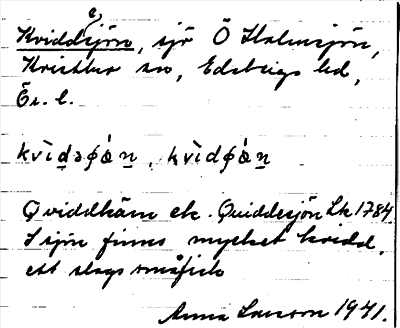 Kvidd(e)sjön, sjö Ö Holmsjön,
Kristbergs sn, Edsbergs hd,
Ör. l.
kvìdəʃø̀n, kvìdʃø̀n
Qviddkärn ek. Quiddesjön Lk 1784.
I sjön finns mycket kvidd,
ett slags småfisk
Anna Larsson 1941.